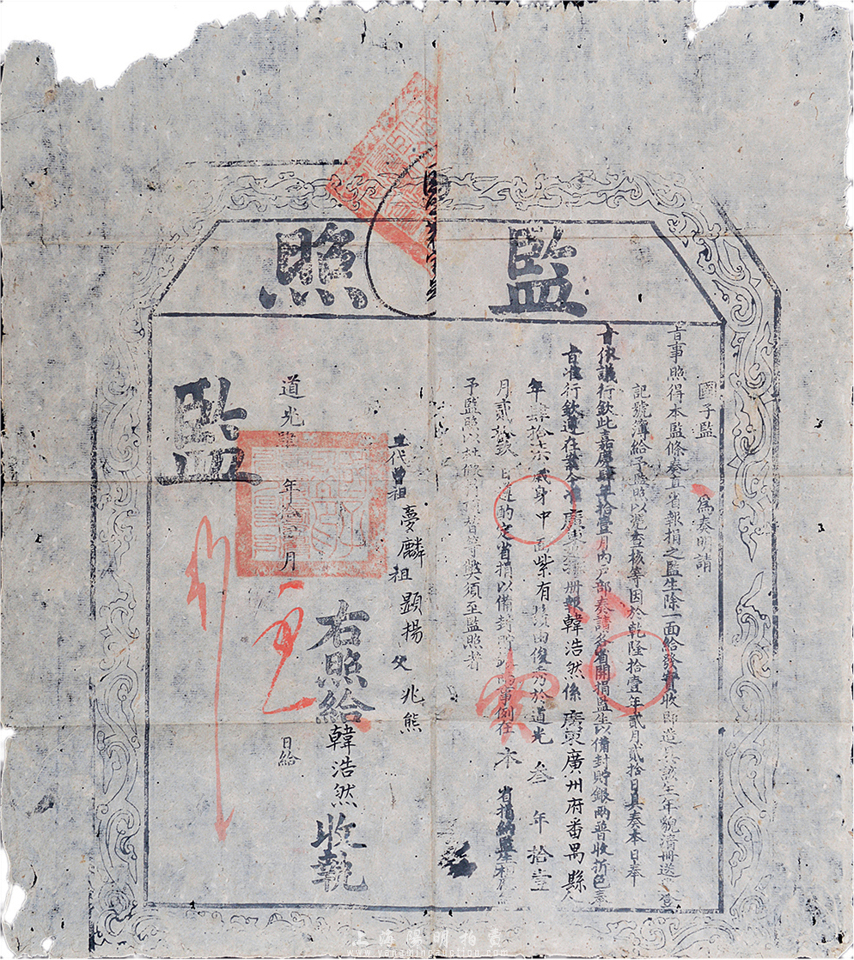 監照
國子監 爲奏明請
旨事照得本監條奏直省報捐之監生除一面給發實收即造具該生年貌清冊送
記號簿給予監照以憑查核等因於乾隆拾壹年貳月貳拾日具奏本日奉
旨依議行欽此嘉慶肆年拾壹月內戶部奏請各省開捐監生以備封貯銀兩普收折色奉
旨准行欽遵在案今准廣 冊報韓浩然係廣東廣州府番禺縣人
年肆拾 歲身中面紫有 由俊秀於道光叁年拾壹
月貳拾玖日 的定省捐以備封貯 事例在本省捐納監生
予監照以杜假 須至監照者
三代曾祖夢麟祖顯揚父兆熊
右照給韓浩然收執
道光 年 月 日給
監